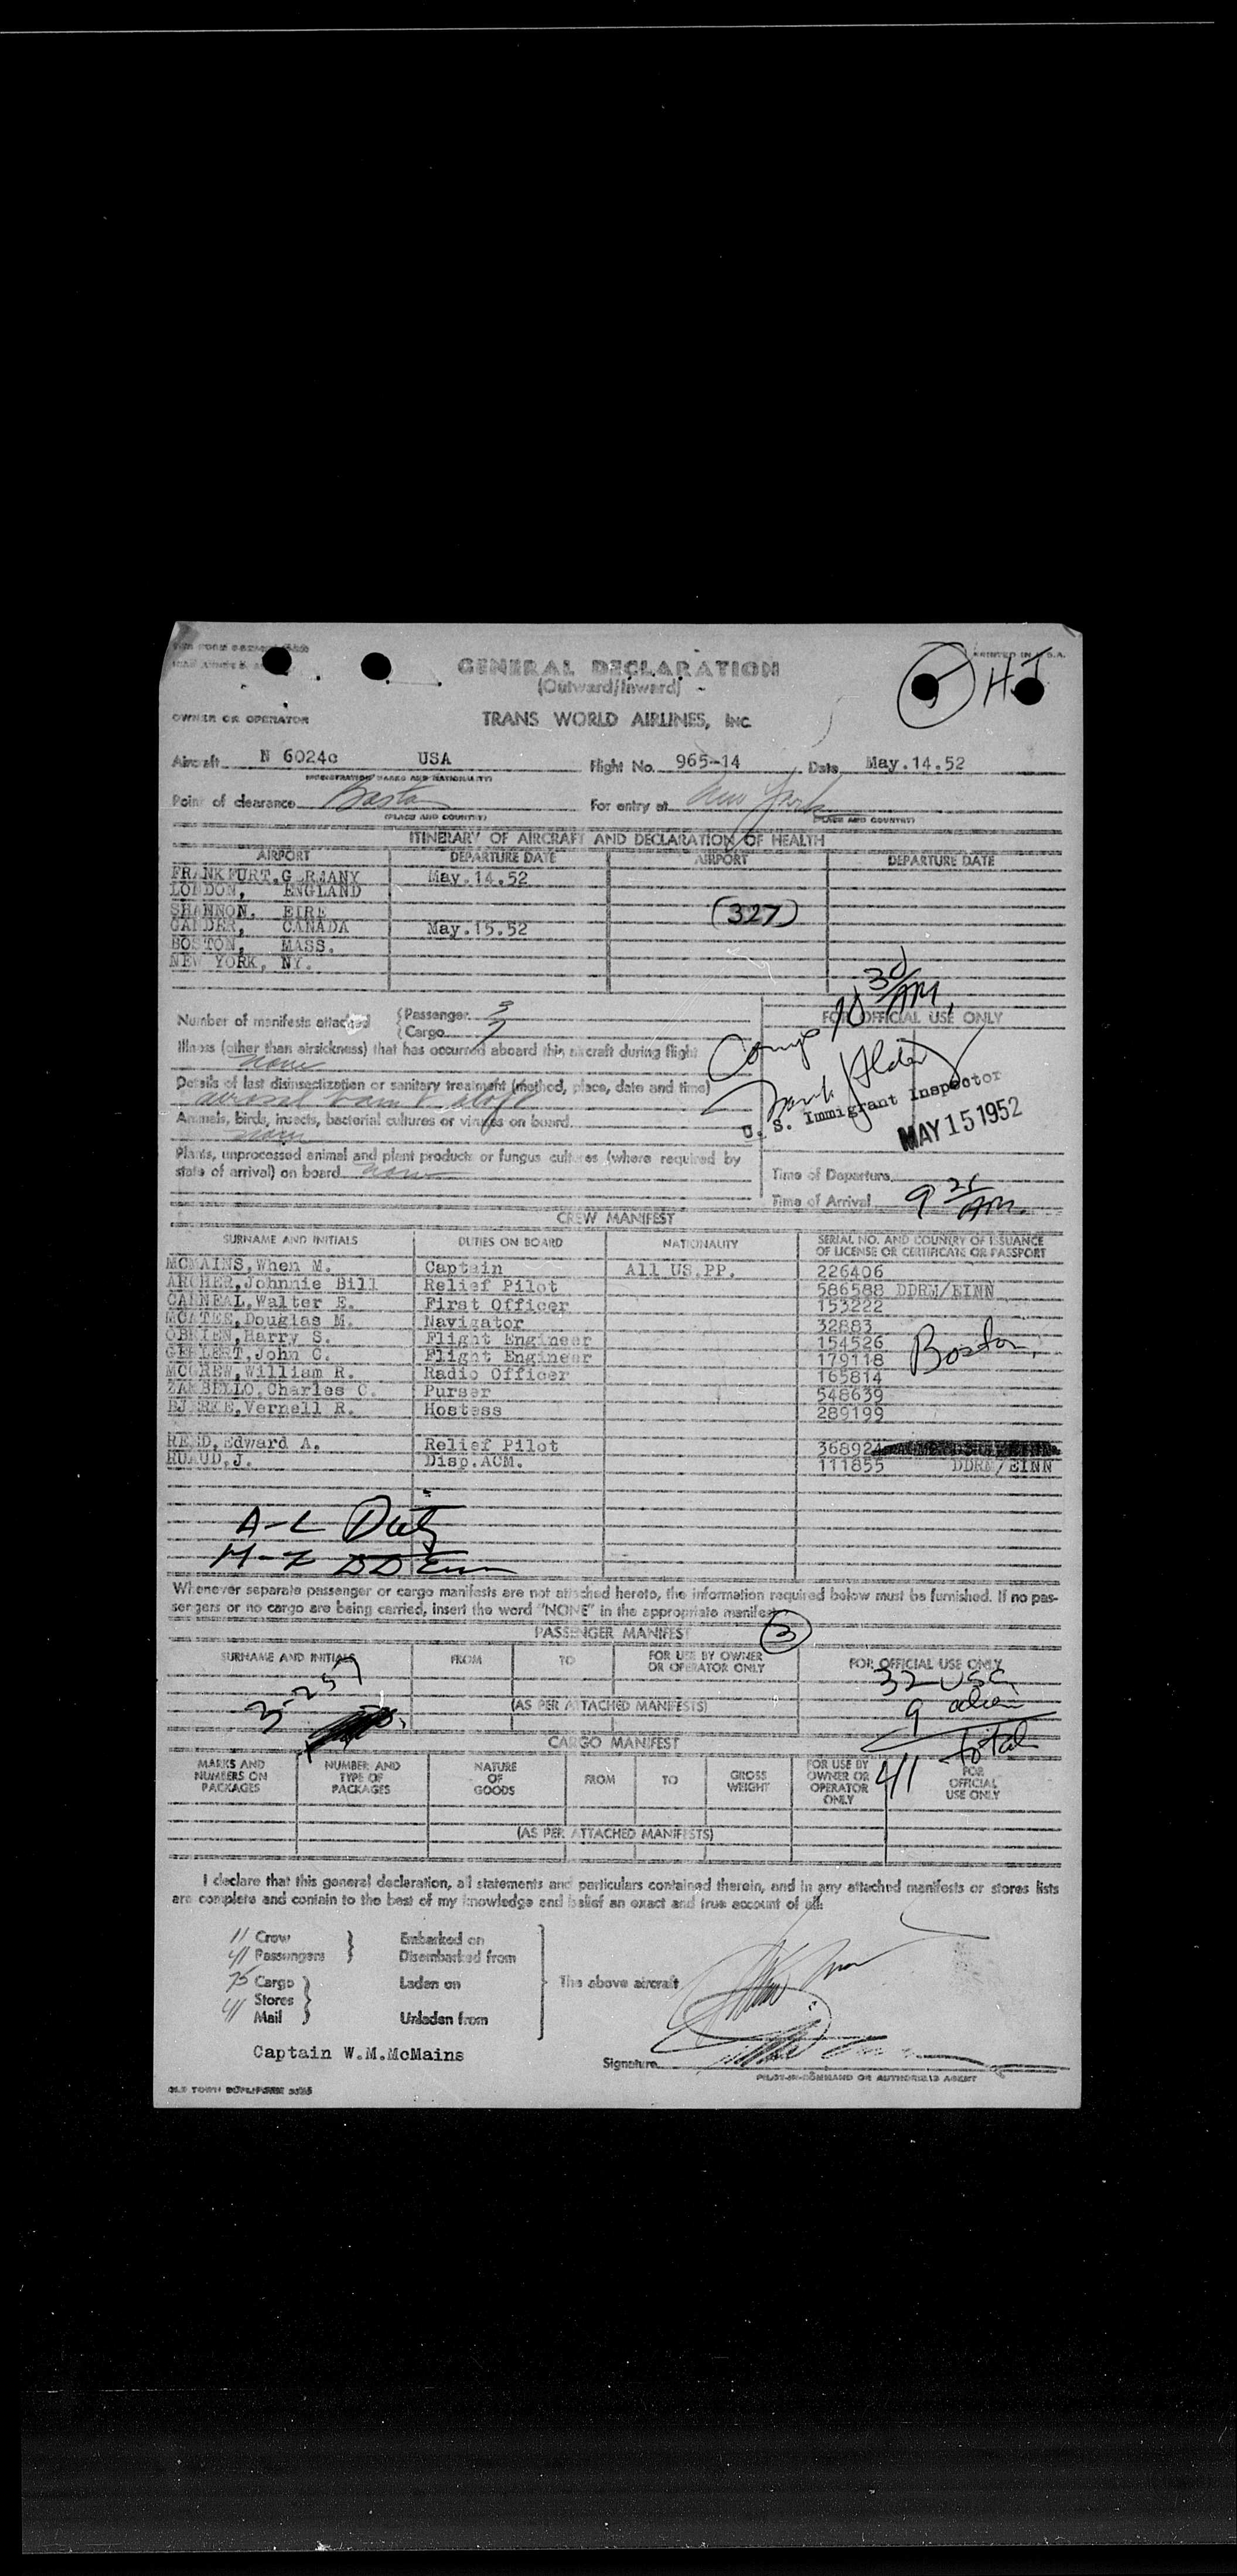 GENERAL DECLARATION
(Outward/Inward)
PRINTED IN U.S.A.
5 HJ
OWNER OR OPERATOR TRANS WORLD AIRLINES, INC.
Aircraft N 6024c USA Flight No. 965-14 Date May.14.52
(REGISTRATION MARKS AND NATIONALITY)
Point of clearance Boston For entry at New York
(PLACE AND COUNTRY) (PLACE AND COUNTRY)
ITINERARY OF AIRCRAFT AND DECLARATION OF HEALTH
AIRPORT DEPARTURE DATE AIRPORT DEPARTURE DATE
FRANKFURT,GERMANY May.14.52
LONDON, ENGLAND
SHANNON, EIRE (327)
GANDER, CANADA May.15.52
BOSTON, MASS.
NEW YORK, NY.
Number of manifests attached { Passenger 3
{ Cargo 7
FOR OFFICIAL USE ONLY
Comp 10 30 AM.
Illness (other than airsickness) that has occurred aboard this aircraft during flight
None
Details of last disinsectization or sanitary treatment (method, place, date and time)
aerosol bomb aloft
U. S. Immigrant Inspector
MAY 15 1952
Animals, birds, insects, bacterial cultures or viruses on board
None
Plants, unprocessed animal and plant products or fungus cultures (where required by
state of arrival) on board None
Time of Departure
Time of Arrival 9 25 AM.
CREW MANIFEST
SURNAME AND INITIALS DUTIES ON BOARD NATIONALITY SERIAL NO. AND COUNTRY OF ISSUANCE
OF LICENSE OR CERTIFICATE OR PASSPORT
MCMAINS,When M. Captain All US.PP. 226406
ARCHER,Johnnie Bill Relief Pilot 586588 DDRM/EINN
CANNEAL,Walter E. First Officer 153222
MCATEE,Douglas M. Navigator 32883
OBRIEN,Harry S. Flight Engineer 154526 Boston,
GELLERT,John C. Flight Engineer 179118
MCGREW,William R. Radio Officer 165814
ZAMBELLO,Charles C. Purser 548639
BJERKE,Vernell R. Hostess 289199
REED,Edward A. Relief Pilot 368924
HUAUD,J. Disp.ACM. 111855 DDRM/EINN
A-L Dietz
M-Z
Whenever separate passenger or cargo manifests are not attached hereto, the information required below must be furnished. If no pas-
sengers or no cargo are being carried, insert the word "NONE" in the appropriate manifest.
PASSENGER MANIFEST 3
SURNAME AND INITIALS FROM TO FOR USE BY OWNER
OR OPERATOR ONLY FOR OFFICIAL USE ONLY
32 USC
3-257 (AS PER ATTACHED MANIFESTS) 9 alien
41 total
CARGO MANIFEST
MARKS AND
NUMBERS ON
PACKAGES NUMBER AND
TYPE OF
PACKAGES NATURE
OF
GOODS FROM TO GROSS
WEIGHT FOR USE BY
OWNER OR
OPERATOR
ONLY FOR
OFFICIAL
USE ONLY
(AS PER ATTACHED MANIFESTS)
I declare that this general declaration, all statements and particulars contained therein, and in any attached manifests or stores lists
are complete and contain to the best of my knowledge and belief an exact and true account of all:
11 Crew } Embarked on
41 Passengers } Disembarked from
75 Cargo } Laden on The above aircraft
Stores }
41 Mail } Unladen from
Captain W.M.McMains
Signature
PILOT-IN-COMMAND OR AUTHORIZED AGENT